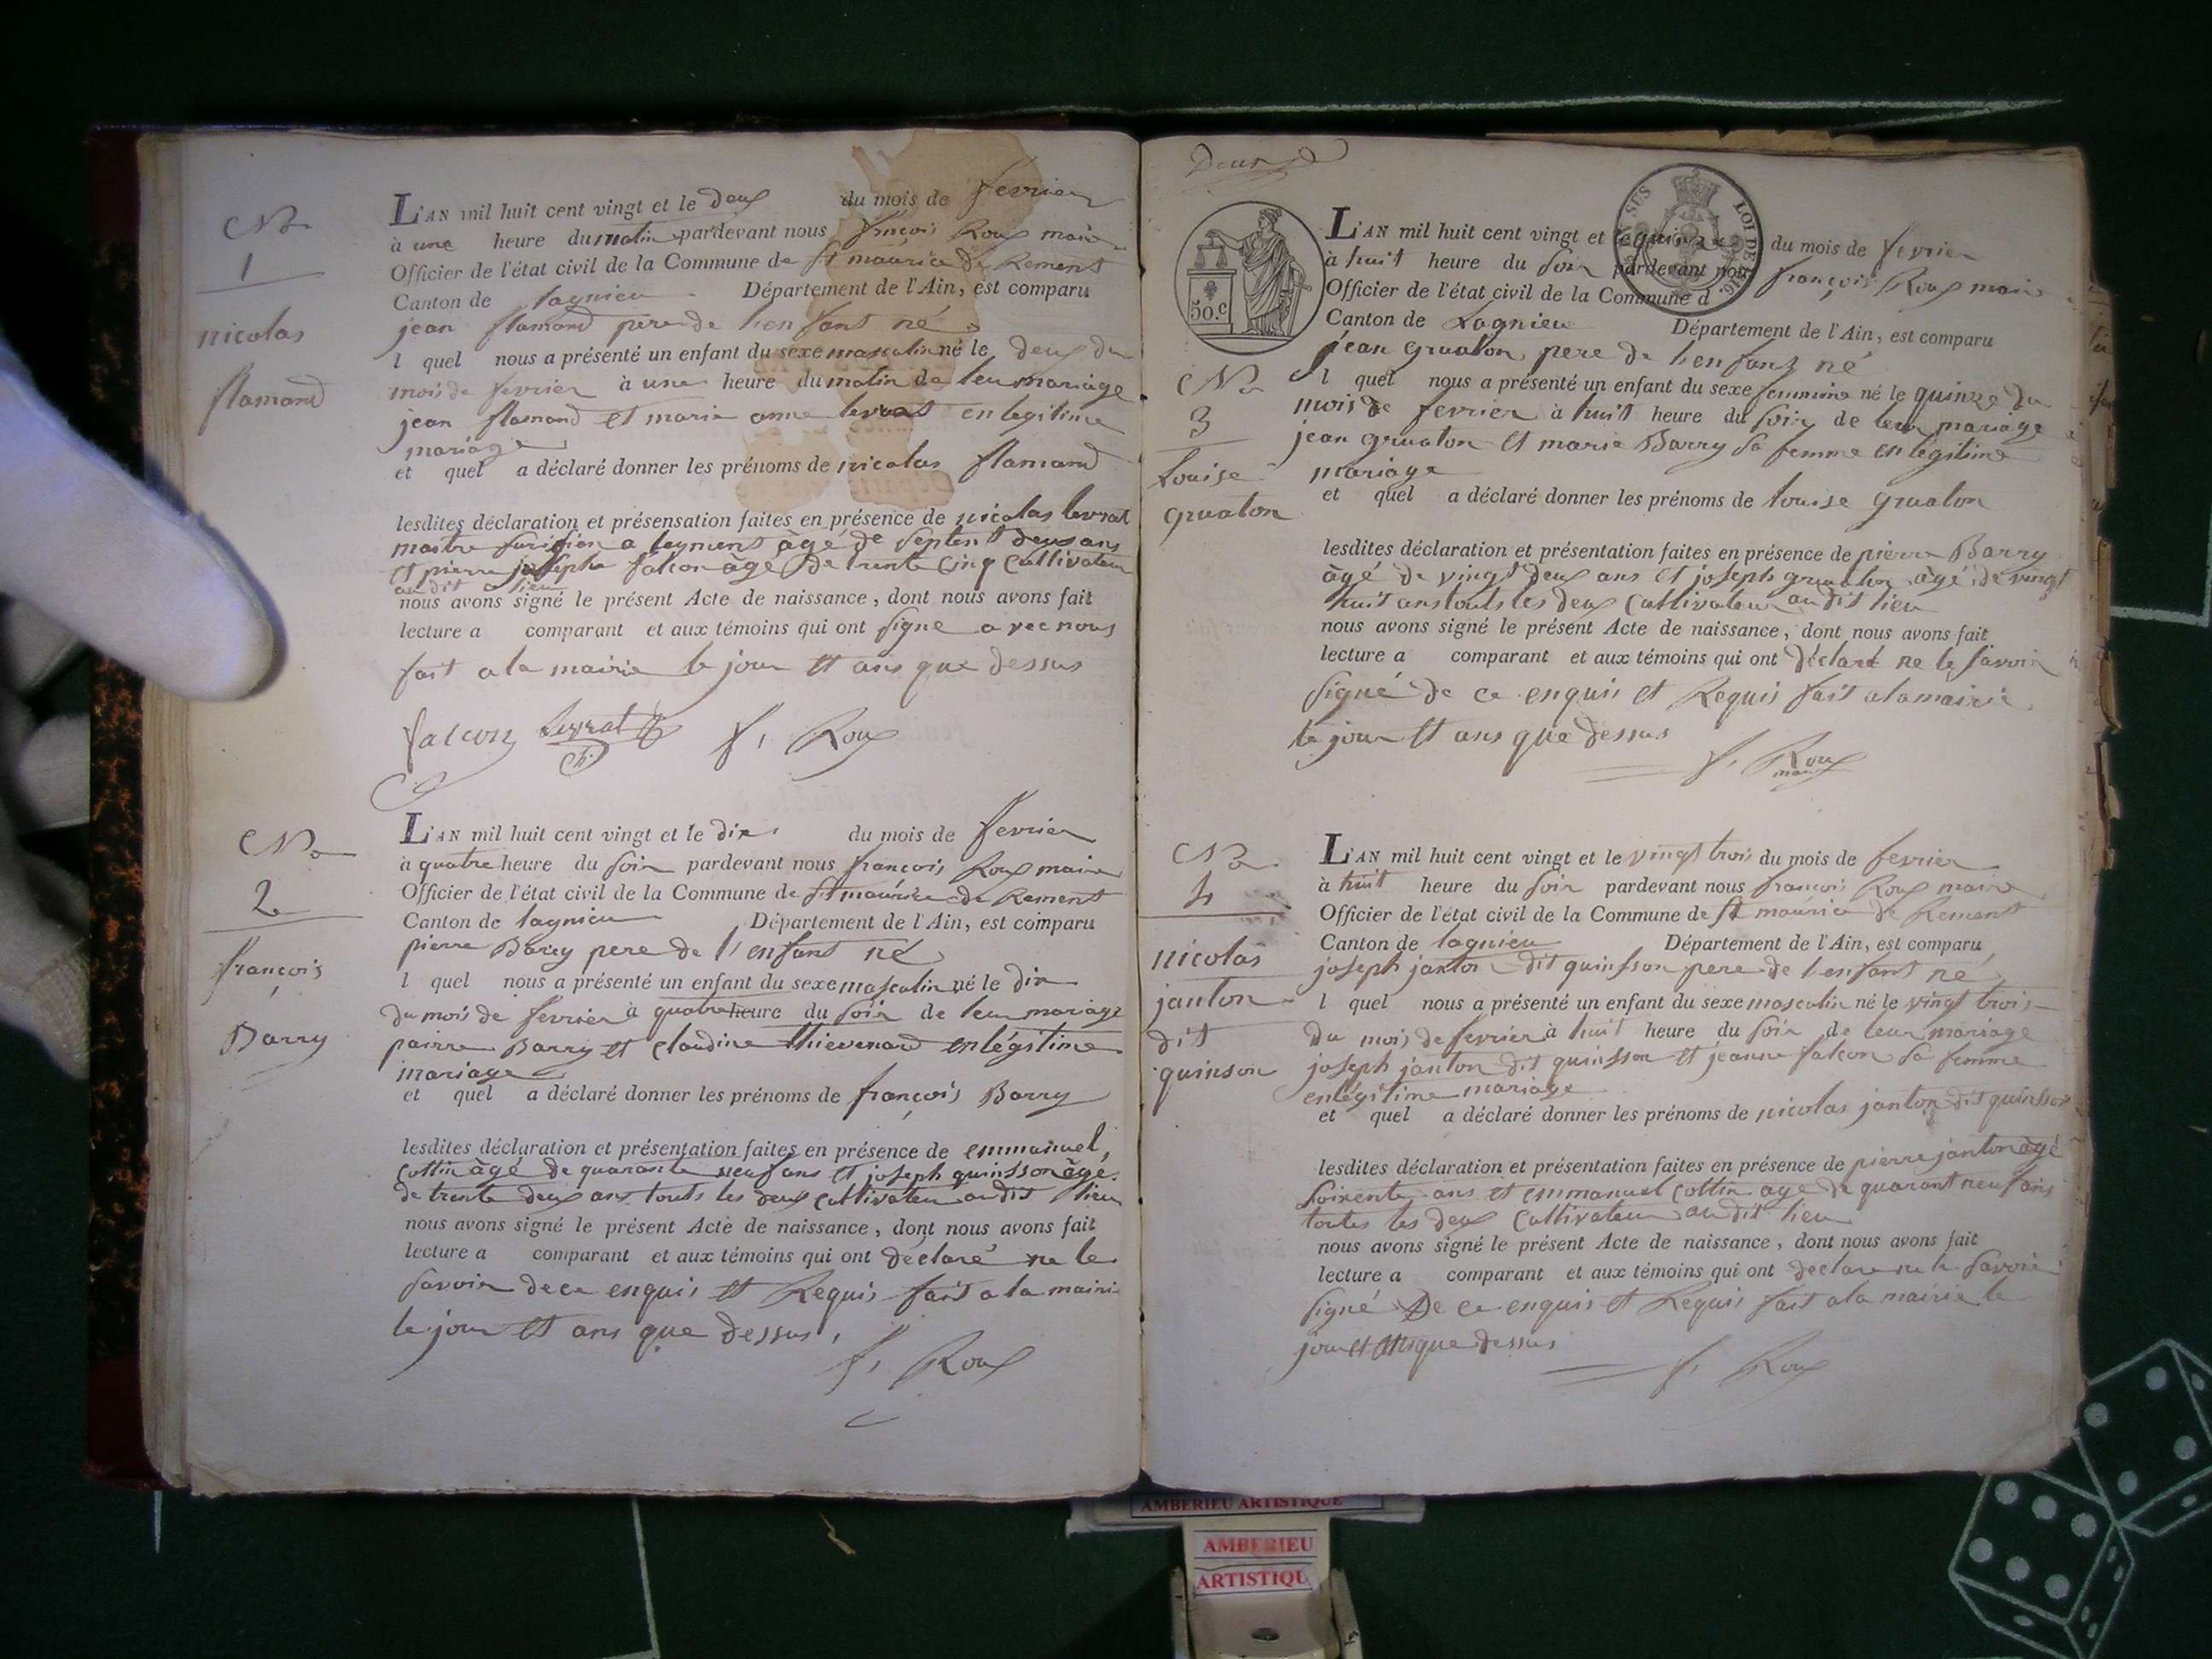 No
1
nicolas
flamand
L'AN mil huit cent vingt et le deux du mois de fevrier
à une heure du matin pardevant nous françois Roux maire
Officier de l'état civil de la Commune de st maurice de Rement
Canton de lagnieu Département de l'Ain, est comparu
jean flamand pere de l'enfant né
l quel nous a présenté un enfant du sexe masculin né le deux du
mois de fevrier à une heure du matin de leu mariage
jean flamand et marie anne levrat en legitime
mariage
et quel a déclaré donner les prénoms de nicolas flamand
lesdites déclaration et présensation faites en présence de nicolas levrat
maitre a leyment âgé de septent deux ans
et pierre josephe falcon âgé de trente cinq Cultivateur
au dit lieu
nous avons signé le présent Acte de naissance, dont nous avons fait
lecture a comparant et aux témoins qui ont signe avec nous
fait a la mairie le jour et ans que dessus
falcon Levrat f, Roux
No
2
françois
Barry
L'AN mil huit cent vingt et le dix du mois de fevrier
à quatre heure du soir pardevant nous françois Roux maire
Officier de l'état civil de la Commune de st maurice de Rement
Canton de lagnieu Département de l'Ain, est comparu
pierre Barry pere de l'enfant né
l quel nous a présenté un enfant du sexe masculin né le dix
du mois de fevrier à quatre heure du soir de leur mariage
pairre Barry et claudine thievenard en légitime
mariage
et quel a déclaré donner les prénoms de françois Barry
lesdites déclaration et présentation faites en présence de emmanuel,
cottin âgé de quarante neuf ans et joseph quinsson âgé
de trente deux ans touts les deux cultivateur au dit lieu
nous avons signé le présent Acte de naissance, dont nous avons fait
lecture a comparant et aux témoins qui ont déclaré ne le
savoir de ce enquis et Requis fait a la mairi
le jour et ans que dessus,
f, Roux
Deux
50.c
SES LOI DE
No
3
Louise
gruaton
L'AN mil huit cent vingt et le quinze du mois de fevrier
à huit heure du soir pardevant nous françois Roux maire
Officier de l'état civil de la Commune d
Canton de Lagnieu Département de l'Ain, est comparu
jean gruaton pere de l'enfant né
l quel nous a présenté un enfant du sexe femmine né le quinze du
mois de fevrier à huit heure du soir de leur mariage
jean gruaton et marie Barry sa femme en légitime
mariage
et quel a déclaré donner les prénoms de louise gruaton
lesdites déclaration et présentation faites en présence de pierre Barry
âgé de vingt deux ans et joseph gruaton âgé de vingt
huit ans touts les deux Cultivateur au dit lieu
nous avons signé le présent Acte de naissance, dont nous avons fait
lecture a comparant et aux témoins qui ont déclaré ne le savoir
signé de ce enquis et Requis fait a la mairie
le jour et ans que dessus
f, Roux
maire
No
4
nicolas
janton
dit
quinson
L'AN mil huit cent vingt et le vingt trois du mois de fevrier
à huit heure du soir pardevant nous françois Roux maire
Officier de l'état civil de la Commune de st maurice de Rement
Canton de lagnieu Département de l'Ain, est comparu
joseph janton dit quinsson pere de l'enfant né
l quel nous a présenté un enfant du sexe masculin né le vingt trois
du mois de fevrier à huit heure du soir de leur mariage
joseph janton dit quinsson et jeanne falcon sa femme
en légitime mariage
et quel a déclaré donner les prénoms de nicolas janton dit quinsson
lesdites déclaration et présentation faites en présence de pierre janton âgé
soixente ans et emmanuel cottin age de quarant neuf ans
toutes les deux Cultivateur au dit lieu
nous avons signé le présent Acte de naissance, dont nous avons fait
lecture a comparant et aux témoins qui ont declare ne le savoir
signé De ce enquis et Requis fait a la mairie le
jour et ans que dessus
f, Roux
AMBERIEU ARTISTIQUE
AMBERIEU
ARTISTIQU